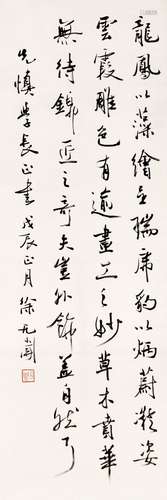 龍鳳以藻繪呈瑞虎豹以炳蔚凝姿
雲霞雕色有逾畫工之妙草木賁華
無待錦匠之奇夫豈外飾蓋自然耳
先慎學長正書戊辰正月徐